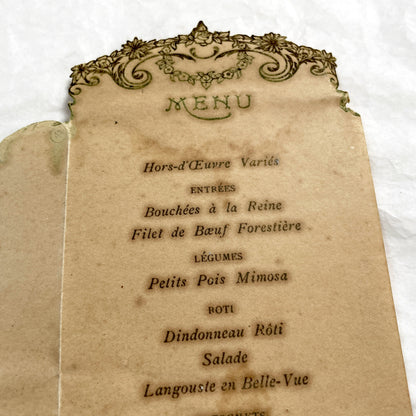 MENU
Hors-d'Œuvre Variés
ENTRÉES
Bouchées à la Reine
Filet de Bœuf Forestière
LÉGUMES
Petits Pois Mimosa
ROTI
Dindonneau Rôti
Salade
Langouste en Belle-Vue